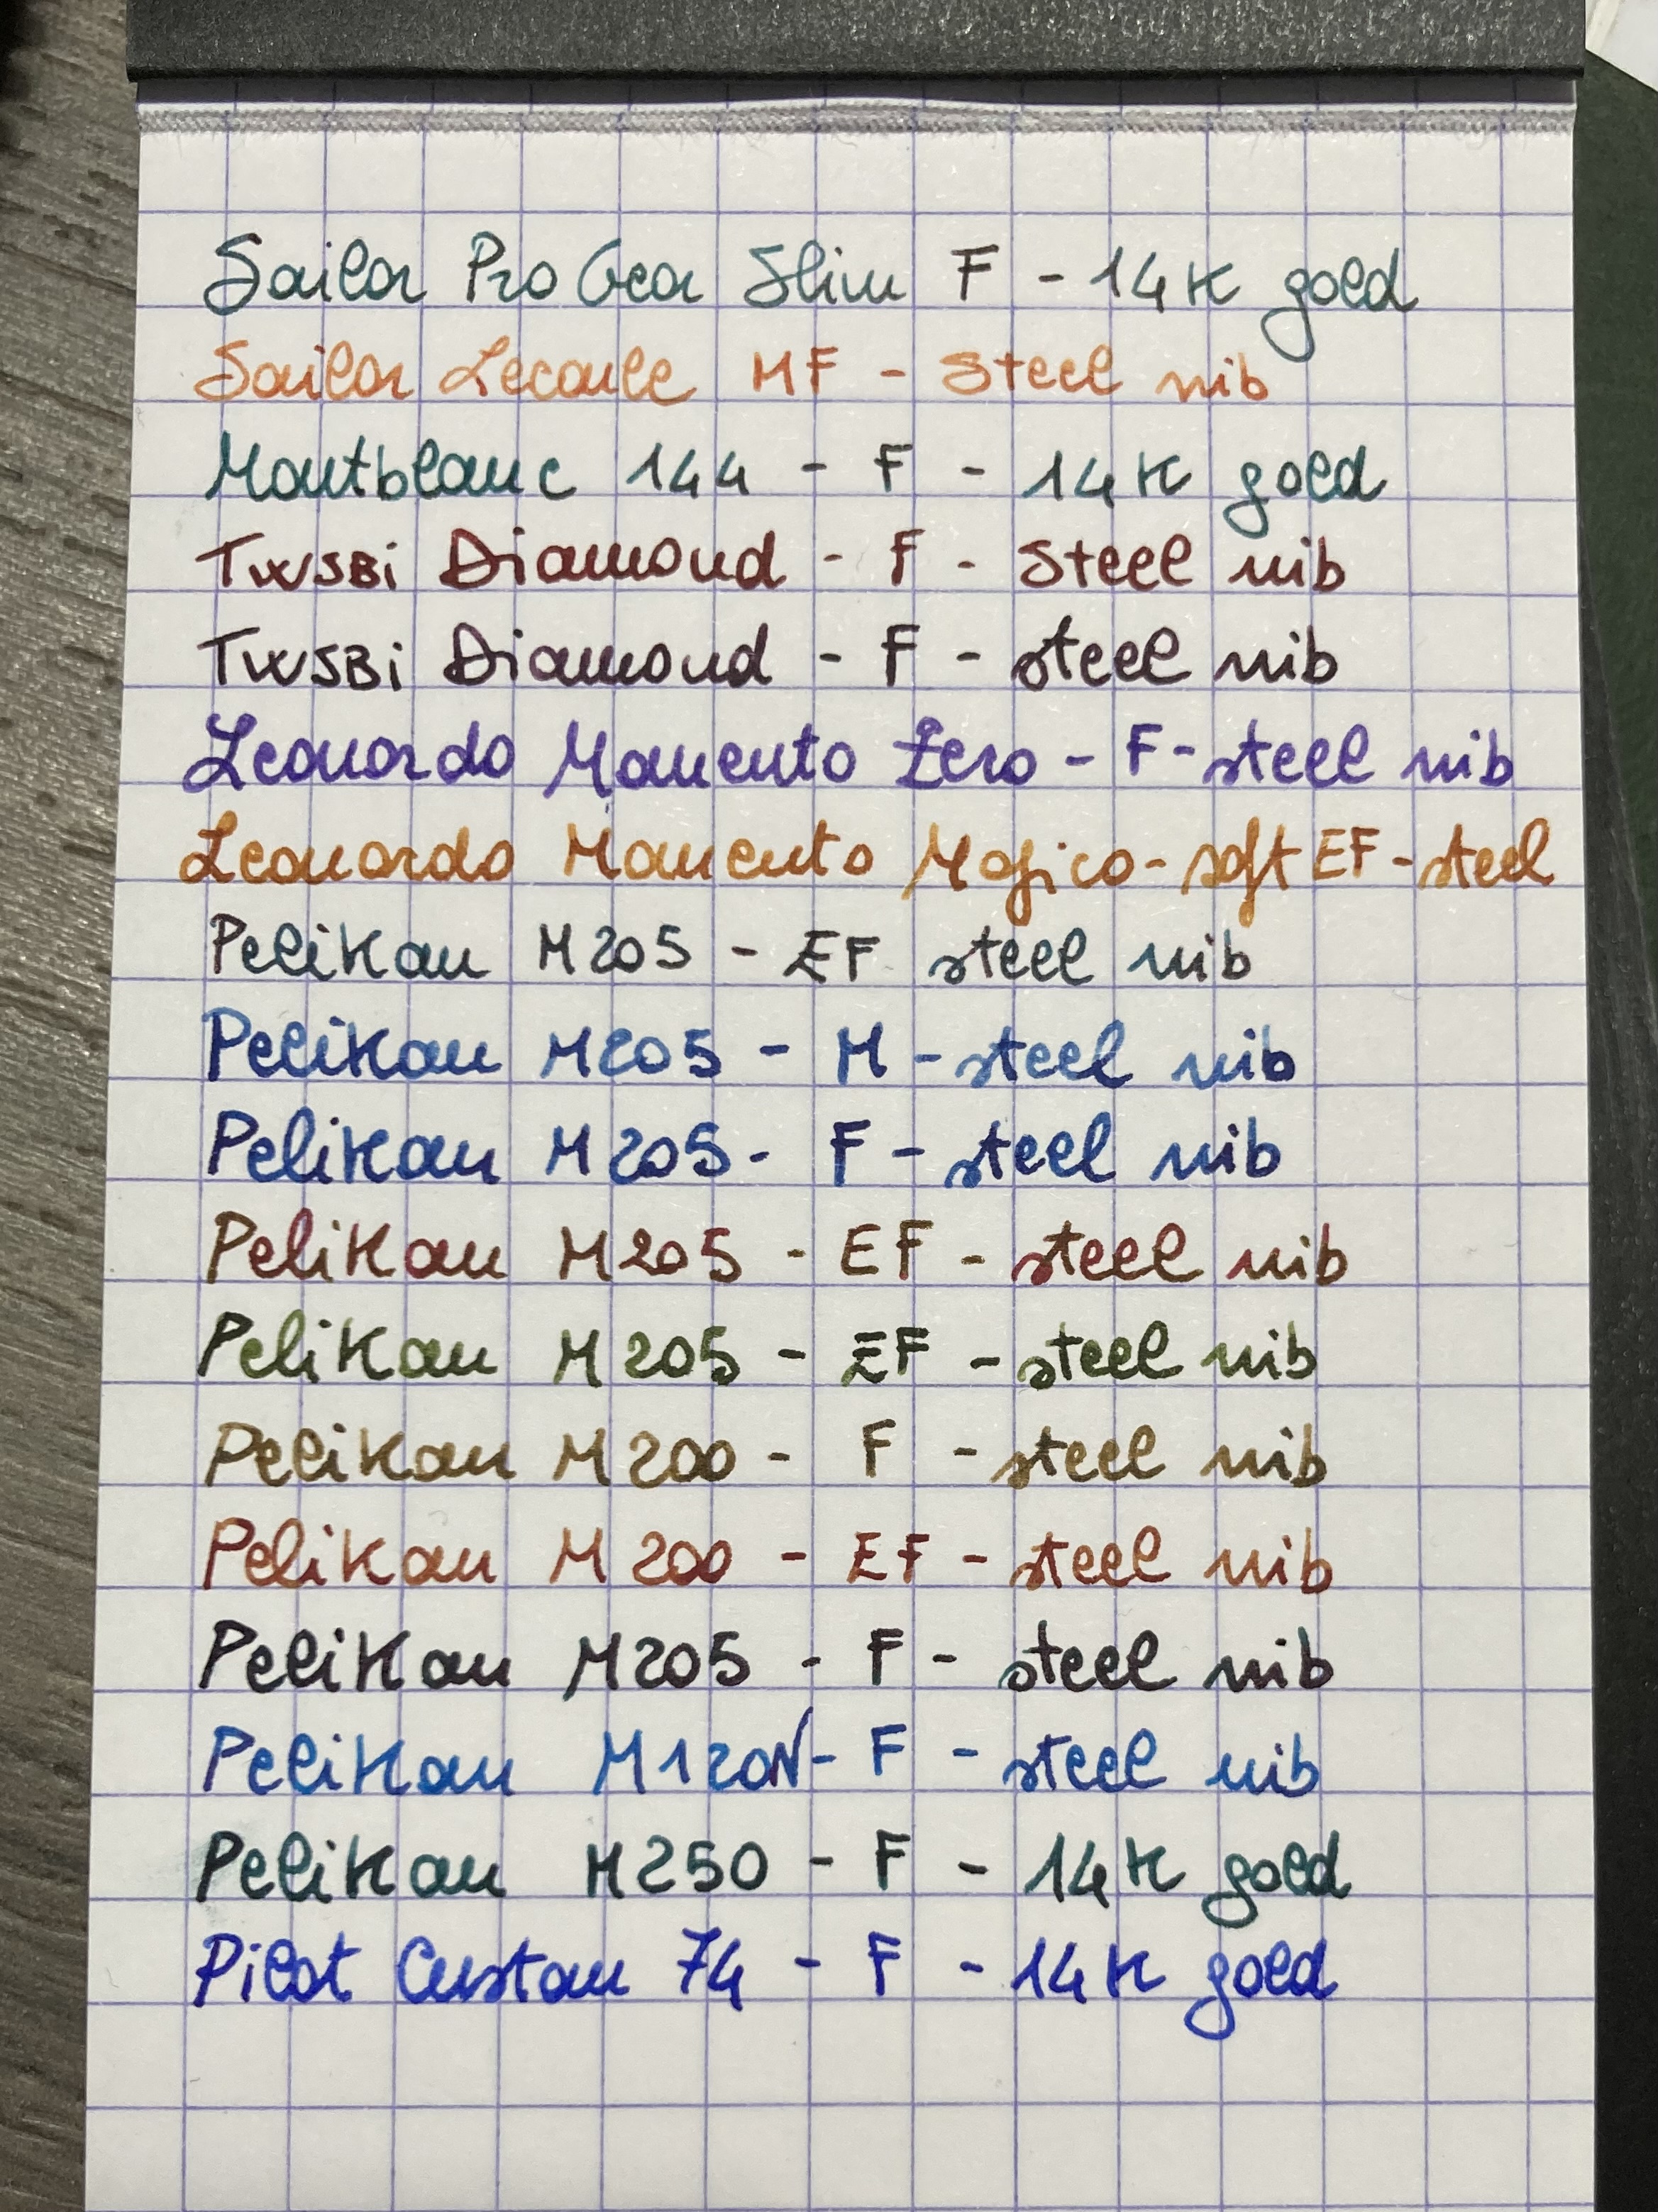 Sailor Pro Gear Slim F - 14K gold
Sailor Lecoule MF - Steel nib
Montblanc 144 - F - 14K gold
TWSBi Diamond - F - Steel nib
TWSBi Diamond - F - steel nib
Leonardo Momento Zero - F - steel nib
Leonardo Momento Magico - soft EF - steel
Pelikan M205 - EF steel nib
Pelikan M205 - M - steel nib
Pelikan M205 - F - steel nib
Pelikan M205 - EF - steel nib
Pelikan M205 - EF - steel nib
Pelikan M200 - F - steel nib
Pelikan M200 - EF - steel nib
Pelikan M205 - F - steel nib
Pelikan M120N - F - steel nib
Pelikan M250 - F - 14K gold
Pilot Custom 74 - F - 14K gold